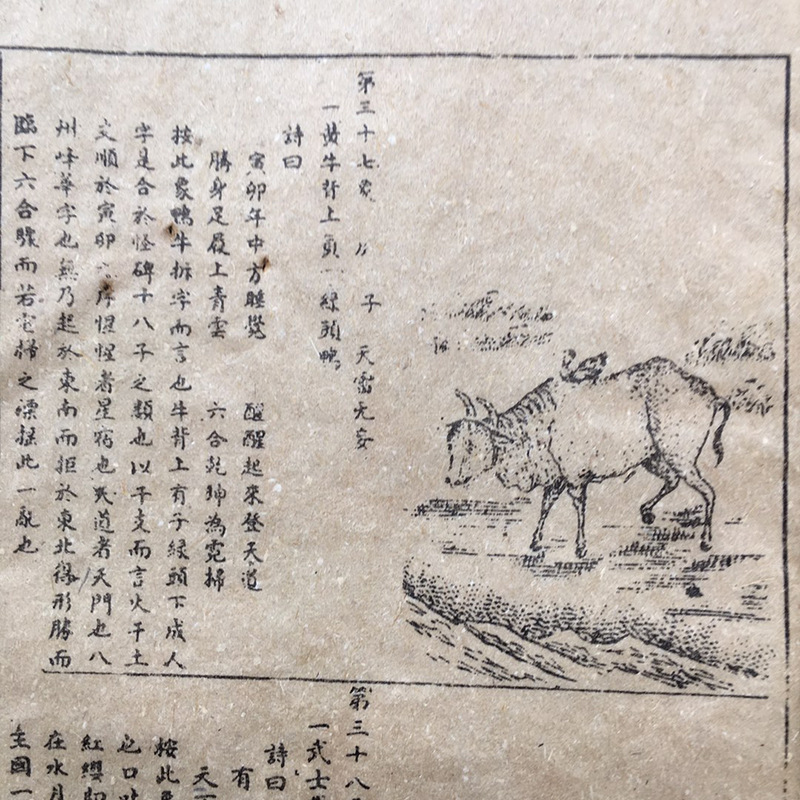 第三十七象 子 天雷无妄
一黄牛背上頁一綠頭鴨
詩曰
寅卯年中方睡覺 醒起來登天道
勝身足履上青雲 六合乾坤為霓掃
按此象鴨牛拆字而言也牛背上有子綠頭下成人
字是合於怪碑十八子之類也以干支而言火干土
支順於寅卯 惺惺者星宿也 道者天門也八
州峰華字也無乃起於東南而拒於東北得形勝而
臨下六合驟而若宅掃之漂揺此一亂也
第三十八
一武士
詩曰
有
天
按此
也口吐
紅纓即
在水月
主國一